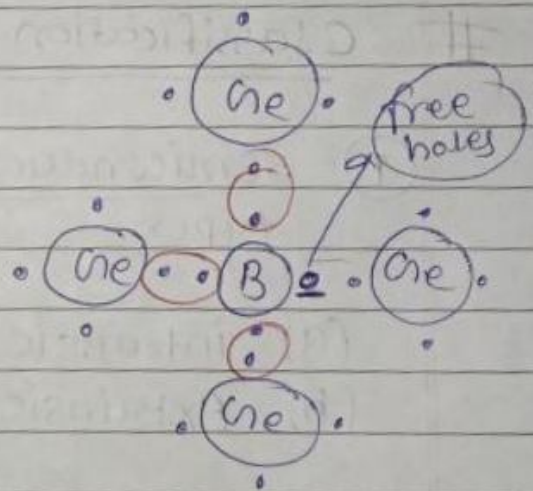 Ge
free
holes
Ge B Ge
Ge